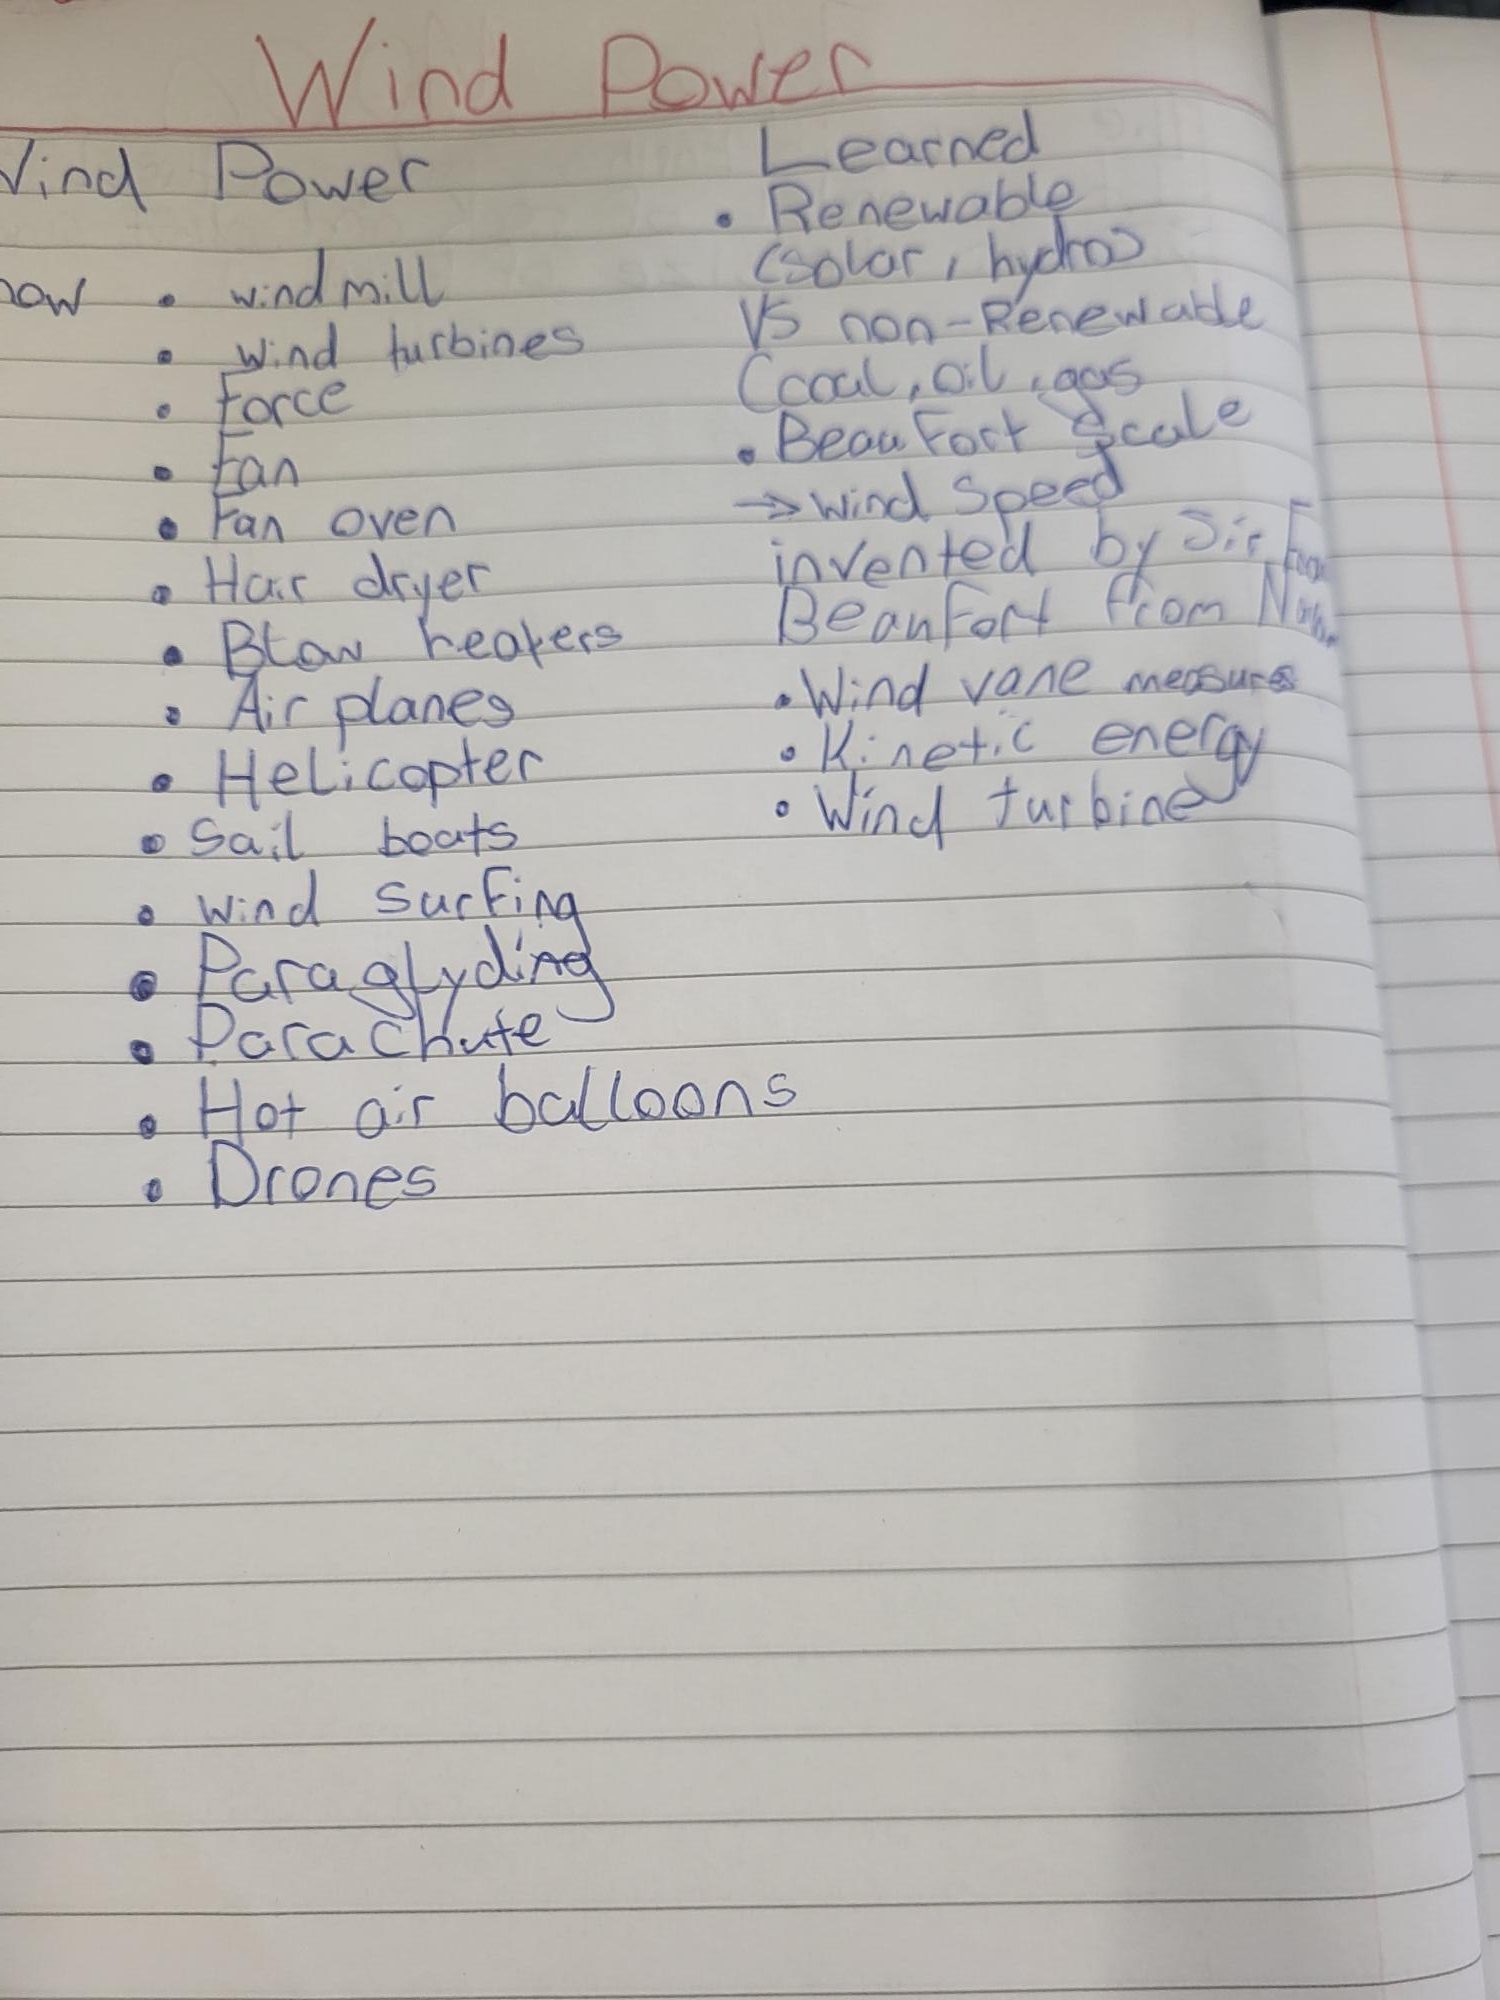 Wind Power
Wind Power
now
• windmill
• wind turbines
• Force
• Fan
• Fan oven
• Hair dryer
• Blow heaters
• Air planes
• Helicopter
• Sail boats
• wind surfing
• Paraglyding
• Parachute
• Hot air balloons
• Drones
Learned
• Renewable
(solar, hydro)
VS non-Renewable
(coal, oil, gas
• Beaufort Scale
→ wind Speed
invented by Sir
Beaufort from
• Wind vane measures
• Kinetic energy
• Wind turbine